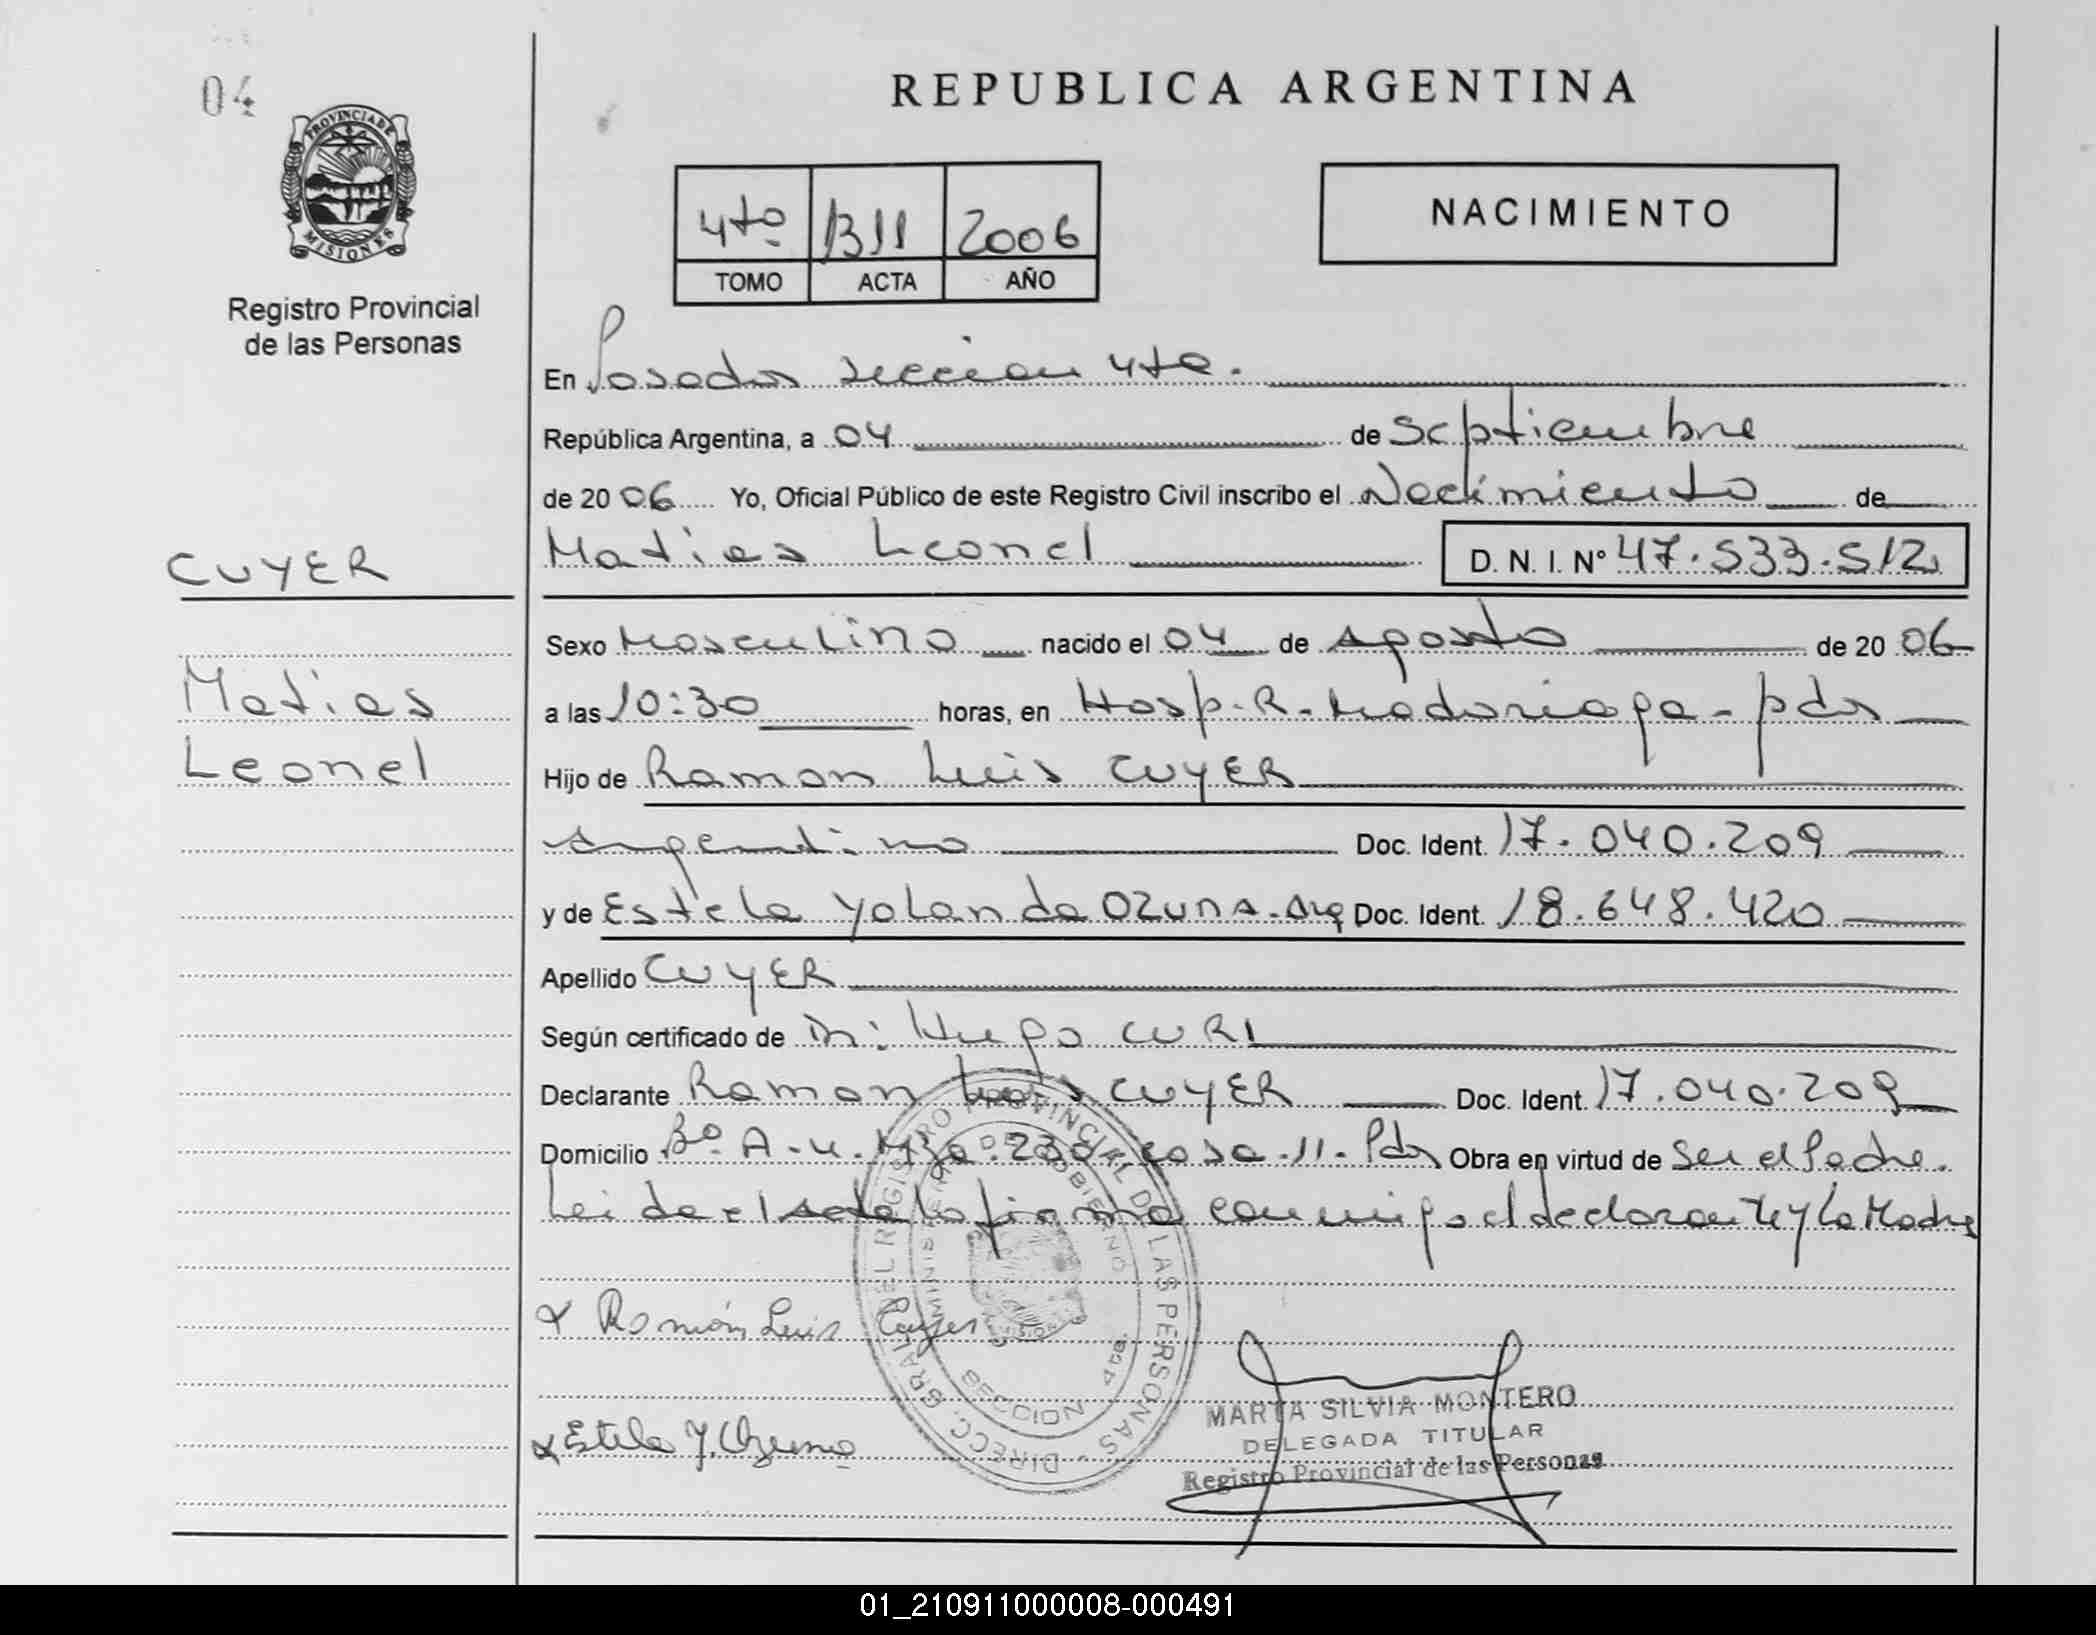 04
PROVINCIA DE
MISIONES
Registro Provincial
de las Personas
REPUBLICA ARGENTINA
4to 1311 2006
TOMO ACTA AÑO
NACIMIENTO
En Posadas seccion 4ta.
República Argentina, a 04 de Septiembre
de 2006 Yo, Oficial Público de este Registro Civil inscribo el Nacimiento de
Matias Leonel D. N. I. Nº 47.533.512
CUYER
Matias
Leonel
Sexo Masculino nacido el 04 de agosto de 20 06
a las 10:30 horas, en Hosp. R. Madariaga - pdas
Hijo de Ramon Luis CUYER
argentino Doc. Ident. 17.040.209
y de Estela Yolanda OZUNA - Arg Doc. Ident. 18.648.420
Apellido CUYER
Según certificado de Dr: Hugo CURI
Declarante Ramon Luis CUYER Doc. Ident. 17.040.209
Domicilio Bº A-4. Mza. 230 casa 11. Pdas Obra en virtud de Ser el Padre.
Leida el acta la firma conmigo el declarante y la Madre
Ramón Luis Cuyer
Estela Y. Ozuna
DIRECC. GRAL. DEL REGISTRO PROVINCIAL DE LAS PERSONAS
MINISTERIO DE GOBIERNO
SECCION 4ta.
MARTA SILVIA MONTERO
DELEGADA TITULAR
Registro Provincial de las Personas
01_210911000008-000491